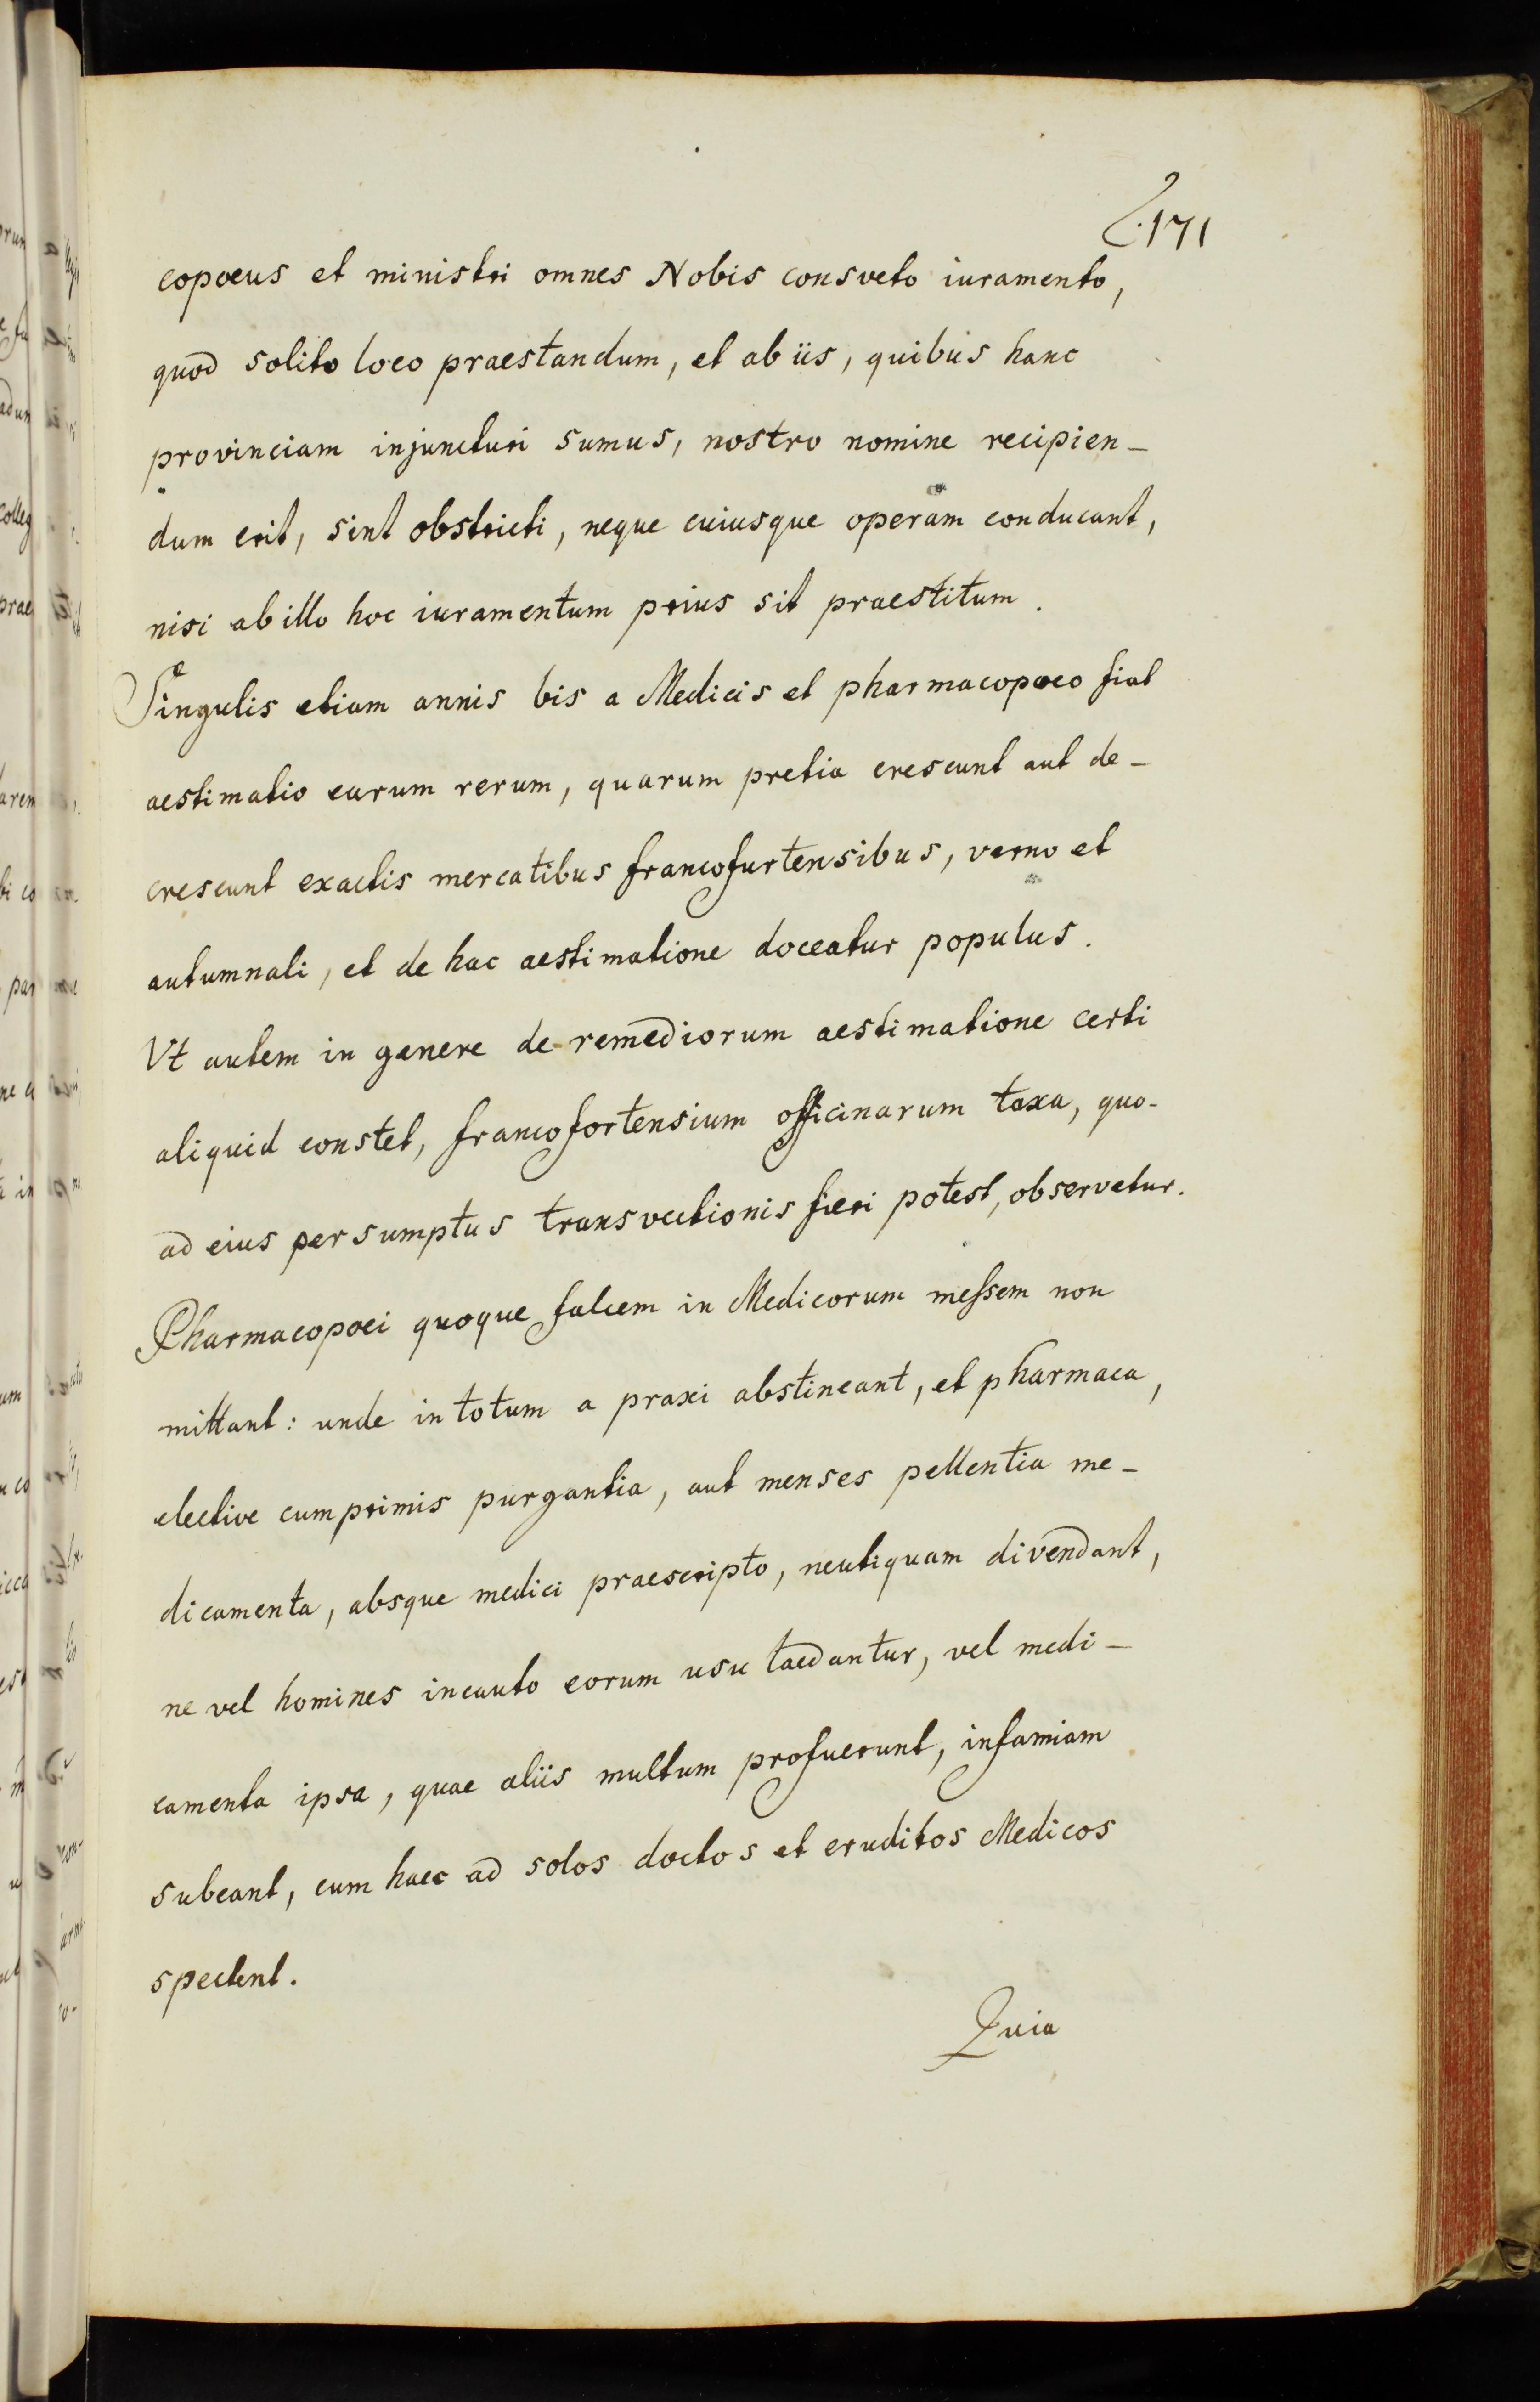 171
copoeus et ministri omnes Nobis consveto iuramento,
quod solito loco praestandum, et ab iis, quibus hanc
provinciam injuncturi sumus, nostro nomine recipien-
dum erit, sint obstricti, neque cuiusque operam conducant,
nisi ab illo hoc iuramentum prius sit praestitum.
Singulis etiam annis bis a Medicis et pharmacopoeo fiat
aestimatio earum rerum, quarum pretia crescunt aut de-
crescunt exactis mercatibus francofurtensibus, verno et
autumnali, et de hac aestimatione doceatur populus.
Vt autem in genere de remediorum aestimatione certi
aliquid constet, francofortensium officinarum taxa, quo-
ad eius per sumptus transvectionis fieri potest, observetur.
Pharmacopoei quoque falcem in Medicorum messem non
mittant: unde in totum a praxi abstineant, et pharmaca,
elective cumprimis purgantia, aut menses pellentia me-
dicamenta, absque medici praescripto, neutiquam divendant,
ne vel homines incauto eorum usu laedantur, vel medi-
camenta ipsa, quae aliis multum profuerunt, infamiam
subeant, cum haec ad solos doctos et eruditos Medicos
spectent.
Quia